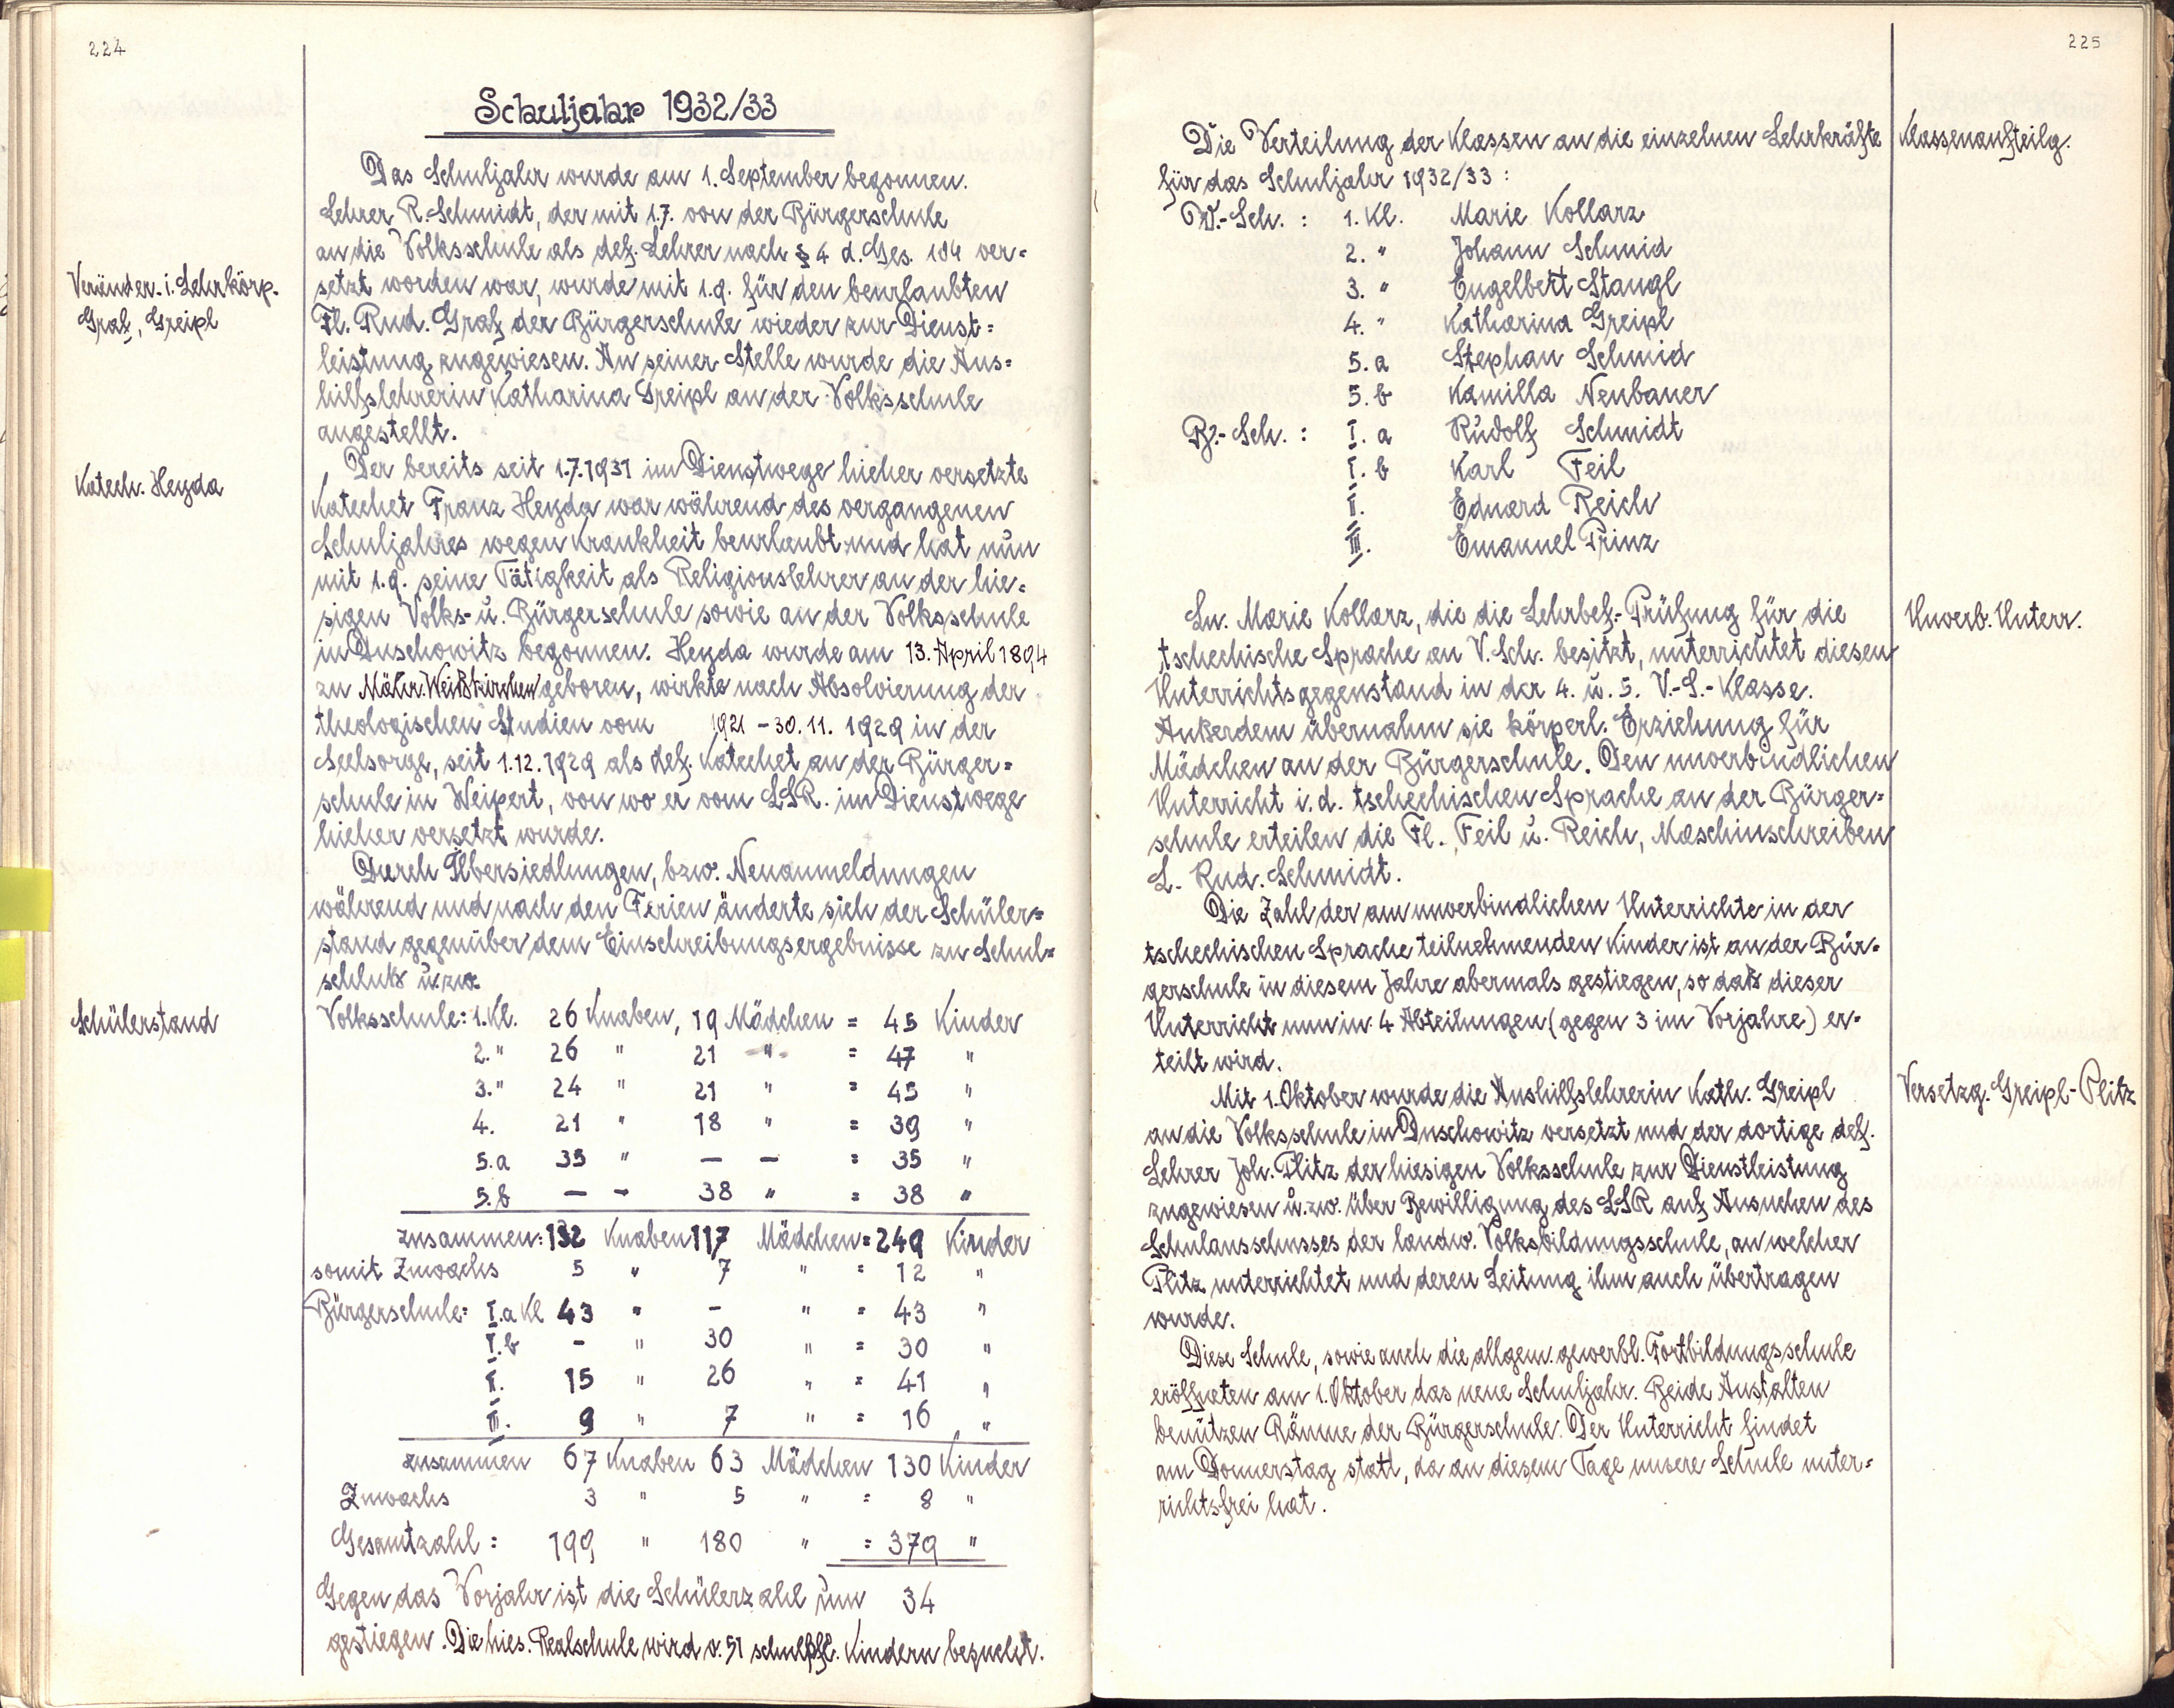 224
Schuljahr 1932/33
Das Schuljahr wurde am 1. September begonnen.
Lehrer R. Schmidt, der mit 1.7. von der Bürgerschule
an die Volksschule als def. Lehrer nach § 4 d. Ges. 104 ver=
setzt worden war, wurde mit 1.9. für den beurlaubten
Veränder. i. Lehrkörp.
Graf, Greipl
Fl. Rud. Graf der Bürgerschule wieder zur Dienst=
leistung zugewiesen. An seiner Stelle wurde die Aus=
hilfslehrerin Katharina Greipl an der Volksschule
angestellt.
Der bereits seit 1.7.1931 im Dienstwege hieher versetzte
Katech. Heyda
Katechet Franz Heyda war während des vergangenen
Schuljahres wegen Krankheit beurlaubt und hat nun
mit 1.9. seine Tätigkeit als Religionslehrer an der hie=
sigen Volks- u. Bürgerschule sowie an der Volksschule
in Duschowitz begonnen. Heyda wurde am 13. April 1894
zu Mähr. Weißkirchen geboren, wirkte nach Absolvierung der
theologischen Studien vom 1921 - 30.11. 1929 in der
Seelsorge, seit 1.12.1929 als def. Katechet an der Bürger=
schule in Weipert, von wo er vom LSR. im Dienstwege
hieher versetzt wurde.
Durch Übersiedlungen, bzw. Neuanmeldungen
während und nach den Ferien änderte sich der Schüler=
stand gegenüber dem Einschreibungsergebnisse zu Schul=
schluß u. zw.
Schülerstand
Volksschule: 1. Kl. 26 Knaben, 19 Mädchen = 45 Kinder
2. " 26 " 21 " = 47 "
3. " 24 " 21 " = 45 "
4. 21 " 18 " = 39 "
5.a 35 " — — = 35 "
5.b — — 38 " = 38 "
zusammen: 132 Knaben 117 Mädchen = 249 Kinder
somit Zuwachs 5 " 7 " = 12 "
Bürgerschule: I.a Kl 43 " - " = 43 "
I.b - " 30 " = 30 "
II. 15 " 26 " = 41 "
III. 9 " 7 " = 16 "
zusammen 67 Knaben 63 Mädchen 130 Kinder
Zuwachs 3 " 5 " = 8 "
Gesamtzahl: 199 " 180 " = 379 "
Gegen das Vorjahr ist die Schülerzahl um 34
gestiegen. Die hies. Realschule wird v. 51 schulpfl. Kindern besucht.
225
Die Verteilung der Klassen an die einzelnen Lehrkräfte
Klassenaufteilg.
für das Schuljahr 1932/33:
V.-Sch.: 1. Kl. Marie Kollarz
2. " Johann Schmid
3. " Engelbert Stangl
4. " Katharina Greipl
5. a Stephan Schmid
5. b Kamilla Neubauer
B.-Sch.: I. a Rudolf Schmidt
I. b Karl Feil
II. Eduard Reich
III. Emanuel Prinz
Ln. Marie Kollarz, die die Lehrbef.-Prüfung für die
Unverb. Unterr.
tschechische Sprache an V. Sch. besitzt, unterrichtet diesen
Unterrichtsgegenstand in der 4. u. 5. V.-S.-Klasse.
Außerdem übernahm sie körperl. Erziehung für
Mädchen an der Bürgerschule. Den unverbindlichen
Unterricht i. d. tschechischen Sprache an der Bürger=
schule erteilen die Fl. Feil u. Reich, Maschinschreiben
L. Rud. Schmidt.
Die Zahl der am unverbindlichen Unterrichte in der
tschechischen Sprache teilnehmenden Kinder ist an der Bür=
gerschule in diesem Jahre abermals gestiegen, so daß dieser
Unterricht nun in 4 Abteilungen (gegen 3 im Vorjahre) er=
teilt wird.
Mit 1. Oktober wurde die Aushilfslehrerin Kath. Greipl
Versetzg. Greipl-Plitz
an die Volksschule in Duschowitz versetzt und der dortige def.
Lehrer Joh. Plitz der hiesigen Volksschule zur Dienstleistung
zugewiesen u. zw. über Bewilligung des LSR auf Ansuchen des
Schulausschusses der landw. Volksbildungsschule, an welcher
Plitz unterrichtet und deren Leitung ihm auch übertragen
wurde.
Diese Schule, sowie auch die allgem. gewerbl. Fortbildungsschule
eröffneten am 1. Oktober das neue Schuljahr. Beide Anstalten
benützen Räume der Bürgerschule. Der Unterricht findet
am Donnerstag statt, da an diesem Tage unsere Schule unter=
richtsfrei hat.